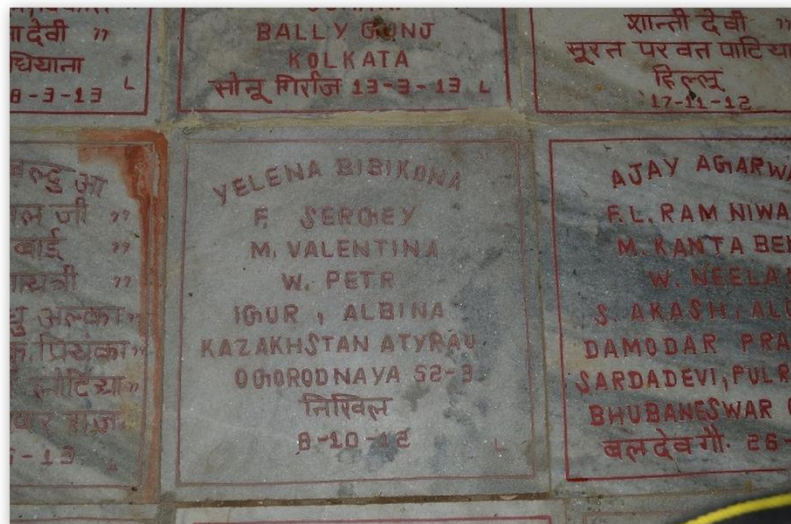 ादेवी "
धियाना
8-3-13 L
BALLY GUNJ
KOLKATA
सोनू गिर्राज 13-3-13 L
शान्ती देवी "
सूरत परवत पाटिया
हिल्लू
17-11-12
ल जी "
बाई "
गायत्री "
अल्का "
प्रियंका "
-13 L
YELENA BIBIKONA
F. SERGEY
M. VALENTINA
W. PETR
IGUR, ALBINA
KAZAKHSTAN ATYRAU
OGORODNAYA 52-3
निखिल
8-10-12 L
AJAY AGARWA
F.L. RAM NIWA
M. KANTA BE
W. NEELA
S. AKASH, AL
DAMODAR PRA
SARDADEVI, PUL
BHUBANESWAR
बलदेव गौ. 26-